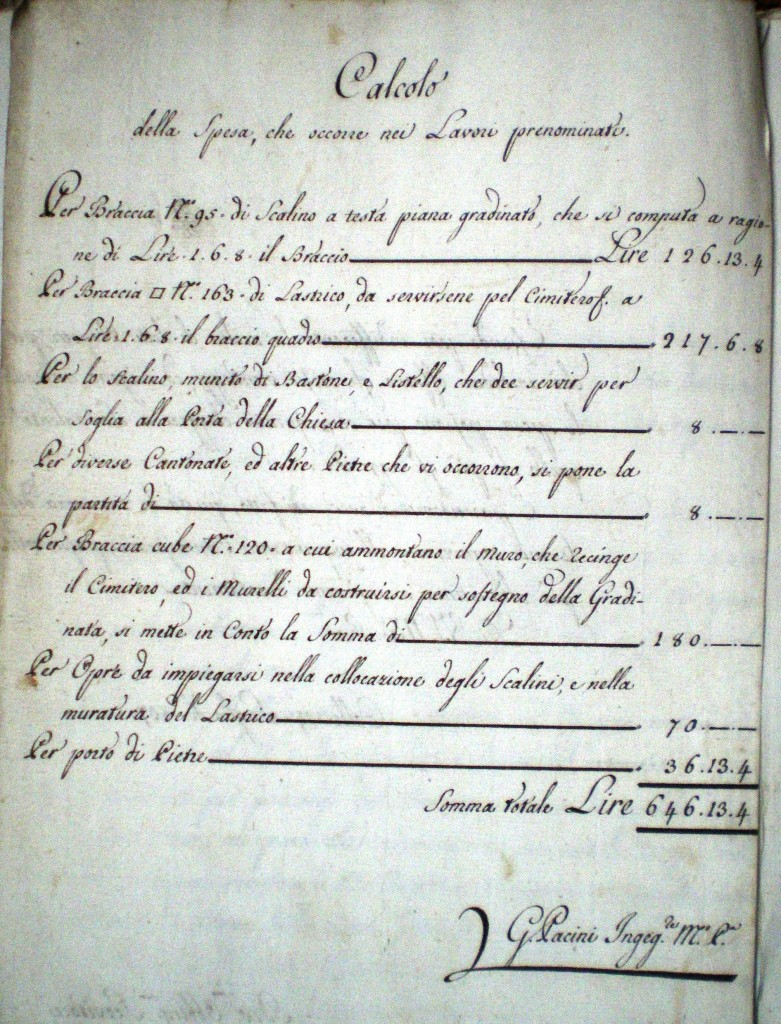 Calcolo
della Spesa, che occorre nei Lavori prenominati.
Per Braccia N.º 95. di Scalino a testa piana gradinato, che si computa a ragio-
ne di Lire. 1. 6. 8. il Braccio Lire 126.13.4
Per Braccia □ N.º 163. di Lastrico, da servirsene pel Cimitero. a
Lire. 1. 6. 8. il braccio quadro . 217.6.8
Per lo Scalino, munito di Bastone, e Listello, che dee servir per
soglia alla Porta della Chiesa . 8.—.—
Per diverse Cantonate, ed altre Pietre che vi occorrono, si pone la
partita di . 8.—.—
Per Braccia cube N.º 120. a cui ammontano il muro, che recinge
il Cimitero, ed i Murelli da costruirsi per sostegno della Gradi-
nata, si mette in Conto la Somma di . 180.—.—
Per Opre da impiegarsi nella collocazione degli Scalini, e nella
muratura del Lastrico . 70.—.—
Per porto di Pietre . 36.13.4
Somma totale Lire 646.13.4
G. Pacini Ingeg.re